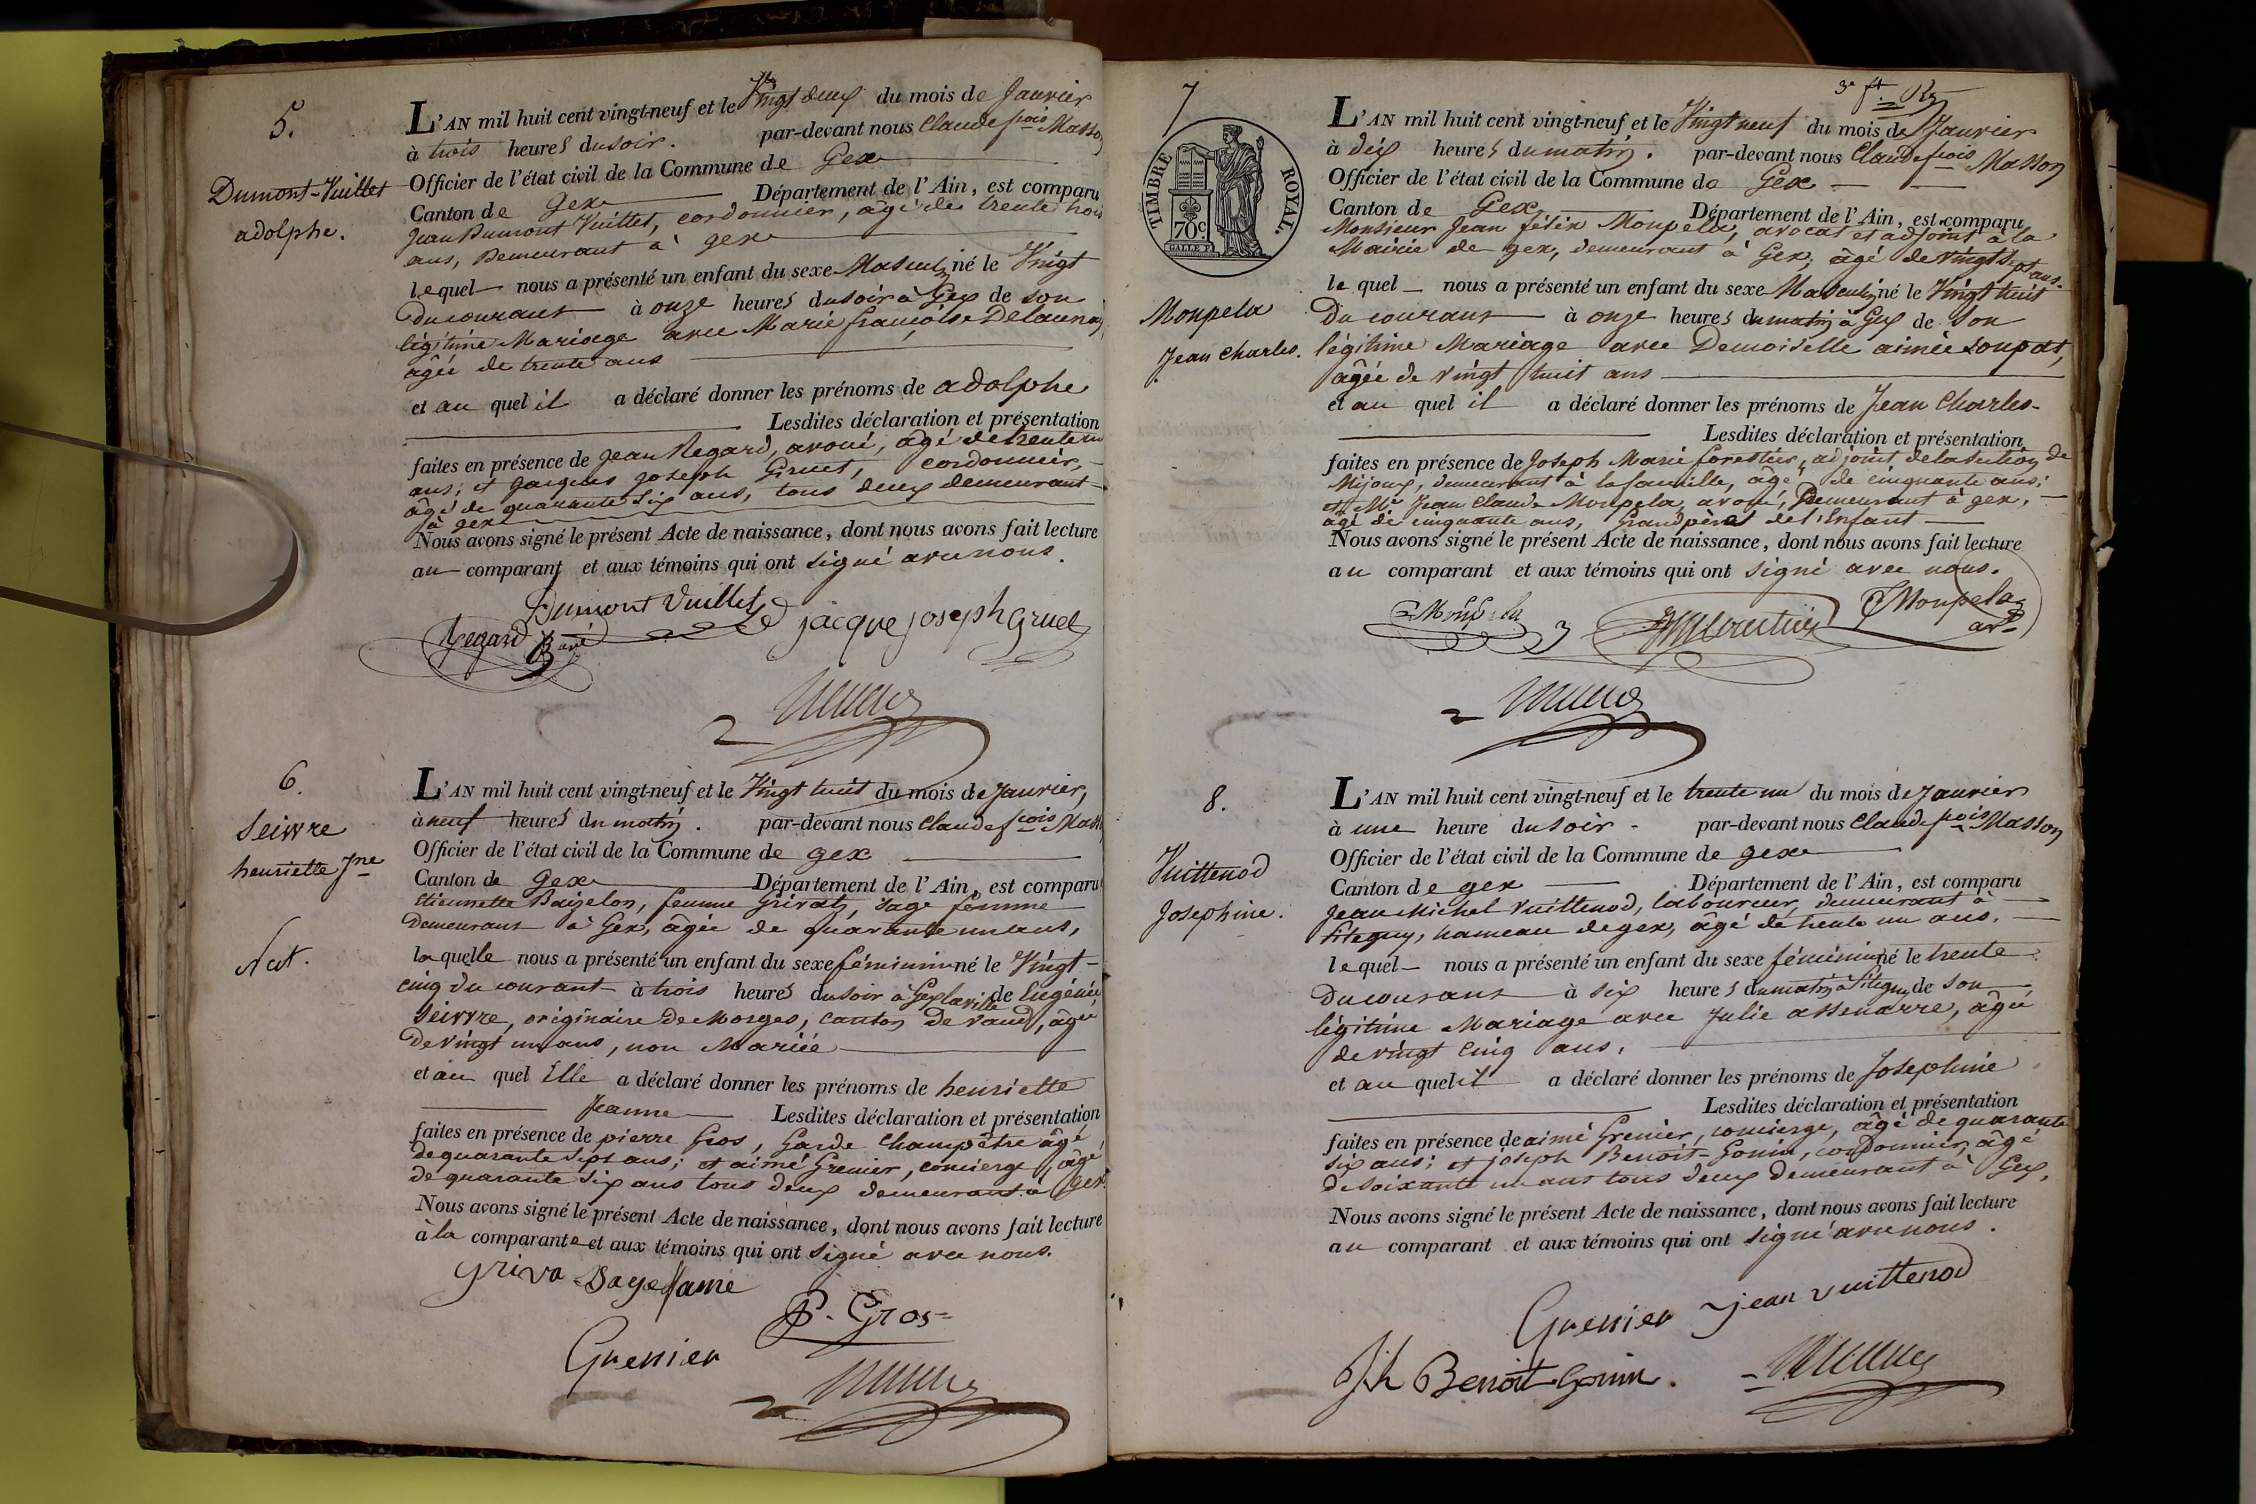 5.
Dumont-Vuillet
adolphe.
L'AN mil huit cent vingt-neuf et le Vingt deux du mois de Janvier
à trois heures du soir. par-devant nous Claude fçois Masson
Officier de l'état civil de la Commune de Gex
Canton de Gex Département de l'Ain, est comparu
Jean Dumont Vuillet, cordonnier, âgé de trente trois
ans, Demeurant à gex
lequel nous a présenté un enfant du sexe Masculin né le Vingt
du courant à onze heures du soir à Gex de son
légitime Mariage avec Marie françoise Delaunay
âgée de trente ans
et au quel il a déclaré donner les prénoms de adolphe
Lesdites déclaration et présentation
faites en présence de Jean Regard, avoué, âgé de trente un
ans; et Jacques Joseph Gruet, cordonnier,
âgé de quarante six ans, tous deux demeurant
à gex
Nous avons signé le présent Acte de naissance, dont nous avons fait lecture
au comparant et aux témoins qui ont signé avec nous.
Dumont Vuillet
Regard
jacque joseph Gruet
6.
Seivre
henriette Jne
Nat.
L'AN mil huit cent vingt-neuf et le Vingt huit du mois de Janvier,
à neuf heures du matin. par-devant nous Claude fçois Masson
Officier de l'état civil de la Commune de gex
Canton de Gex Département de l'Ain, est comparu
Etiennette femme Grivat, sage femme
Demeurant à Gex, âgée de quarante un ans,
laquelle nous a présenté un enfant du sexe féminin né le Vingt-
cinq du courant à trois heures du soir à Gex la ville de Eugénie
Seivre, originaire de Morges, canton de Vaud, âgée
De vingt un ans, non Mariée
et au quel Elle a déclaré donner les prénoms de henriette
Jeanne Lesdites déclaration et présentation
faites en présence de pierre Gros, Garde Champêtre âgé
de quarante sept ans; et aimé Grenier, concierge, âgé
de quarante six ans tous deux demeurant à Gex
Nous avons signé le présent Acte de naissance, dont nous avons fait lecture
à la comparante et aux témoins qui ont signé avec nous.
Griva Sage fame
P. Gros
Grenier
7
3e ft.
TIMBRE ROYAL.
70c
Monpela
Jean Charles.
L'AN mil huit cent vingt-neuf et le Vingt neuf du mois de Janvier
à dix heures du matin. par-devant nous Claude fçois Masson
Officier de l'état civil de la Commune de Gex
Canton de Gex Département de l'Ain, est comparu
Monsieur Jean félix Monpela, avocat et adjoint à la
Mairie de gex, demeurant à Gex, âgé de vingt sept ans.
lequel nous a présenté un enfant du sexe Masculin né le Vingt huit
Du courant à onze heures du matin à Gex de son
légitime Mariage avec Demoiselle aimée Soupat,
âgée de vingt huit ans
et au quel il a déclaré donner les prénoms de Jean Charles.
Lesdites déclaration et présentation
faites en présence de Joseph Marie forestier, adjoint de la section de
Mijoux, demeurant à lafaucille, âgé de cinquante ans;
et Mr Jean Claude Monpela, avoué, Demeurant à gex,
âgé de cinquante ans, Grand père de l'Enfant
Nous avons signé le présent Acte de naissance, dont nous avons fait lecture
au comparant et aux témoins qui ont signé avec nous.
Monpela
Monpela
8.
Vuittenod
Josephine.
L'AN mil huit cent vingt-neuf et le trente un du mois de Janvier
à une heure du soir. par-devant nous Claude fçois Masson
Officier de l'état civil de la Commune de gex
Canton de gex Département de l'Ain, est comparu
Jean Michel Vuittenod, laboureur, demeurant à
Pitegny, hameau de gex, âgé de trente un ans,
lequel nous a présenté un enfant du sexe féminin né le trente
Du courant à six heures du matin à Pitegny de son
légitime Mariage avec Julie assenarre, âgée
de vingt cinq ans,
et au quel il a déclaré donner les prénoms de Josephine
Lesdites déclaration et présentation
faites en présence de aimé Grenier, concierge, âgé de quarante
six ans; et joseph Benoit-Gonin, cordonnier, âgé
de soixante un ans tous deux demeurant à Gex,
Nous avons signé le présent Acte de naissance, dont nous avons fait lecture
au comparant et aux témoins qui ont signé avec nous.
Grenier jean Vuittenod
Jh Benoit Gonin.